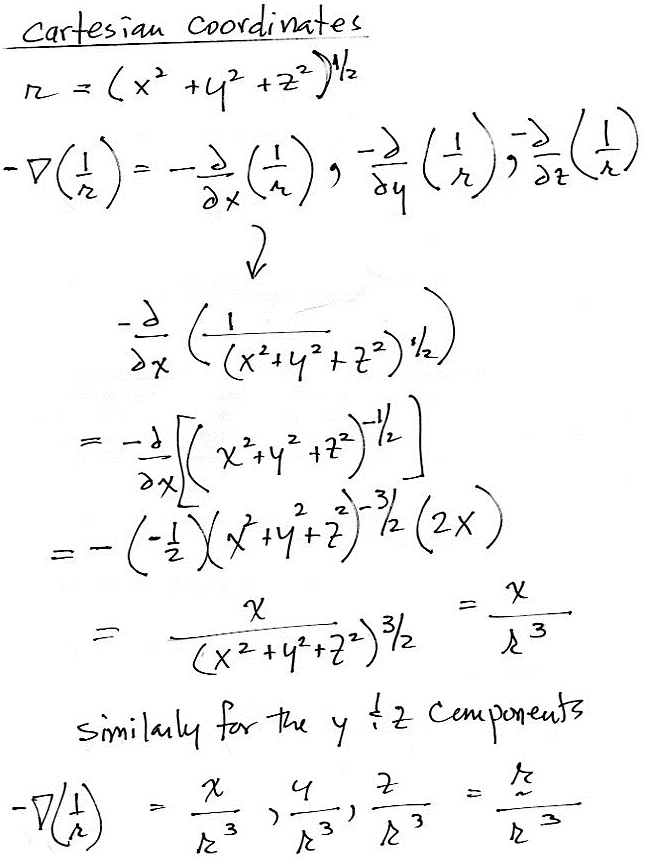 Cartesian Coordinates
r = (x² + y² + z²)^1/2
-∇(1/r) = -∂/∂x (1/r), -∂/∂y (1/r), -∂/∂z (1/r)
-∂/∂x (1/(x²+y²+z²)^1/2)
= -∂/∂x [(x²+y²+z²)^-1/2]
= -(-1/2)(x²+y²+z²)^-3/2 (2x)
= x/(x²+y²+z²)^3/2 = x/r³
similarly for the y & z components
-∇(1/r) = x/r³, y/r³, z/r³ = r̰/r³